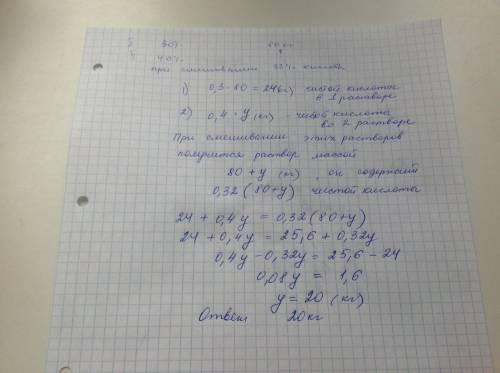 30%
40%
при смешивании 32% кислоты
1) 0,3·80 = 24(кг) чистой кислоты
в 1 растворе
2) 0,4·y (кг) - чистой кислоты
во 2 растворе
При смешивании этих растворов
получится раствор массой
80+y (кг), он содержит
0,32(80+y) чистой кислоты
24 + 0,4y = 0,32(80+y)
24 + 0,4y = 25,6 + 0,32y
0,4y - 0,32y = 25,6 - 24
0,08y = 1,6
y = 20 (кг)
Ответ 20 кг